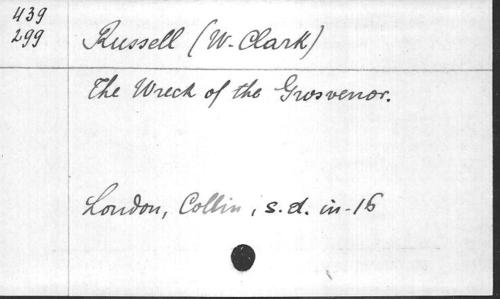 439
299
Russell (W. Clark)
The Wreck of the Grosvenor.
London, Collin, s.d. in-16